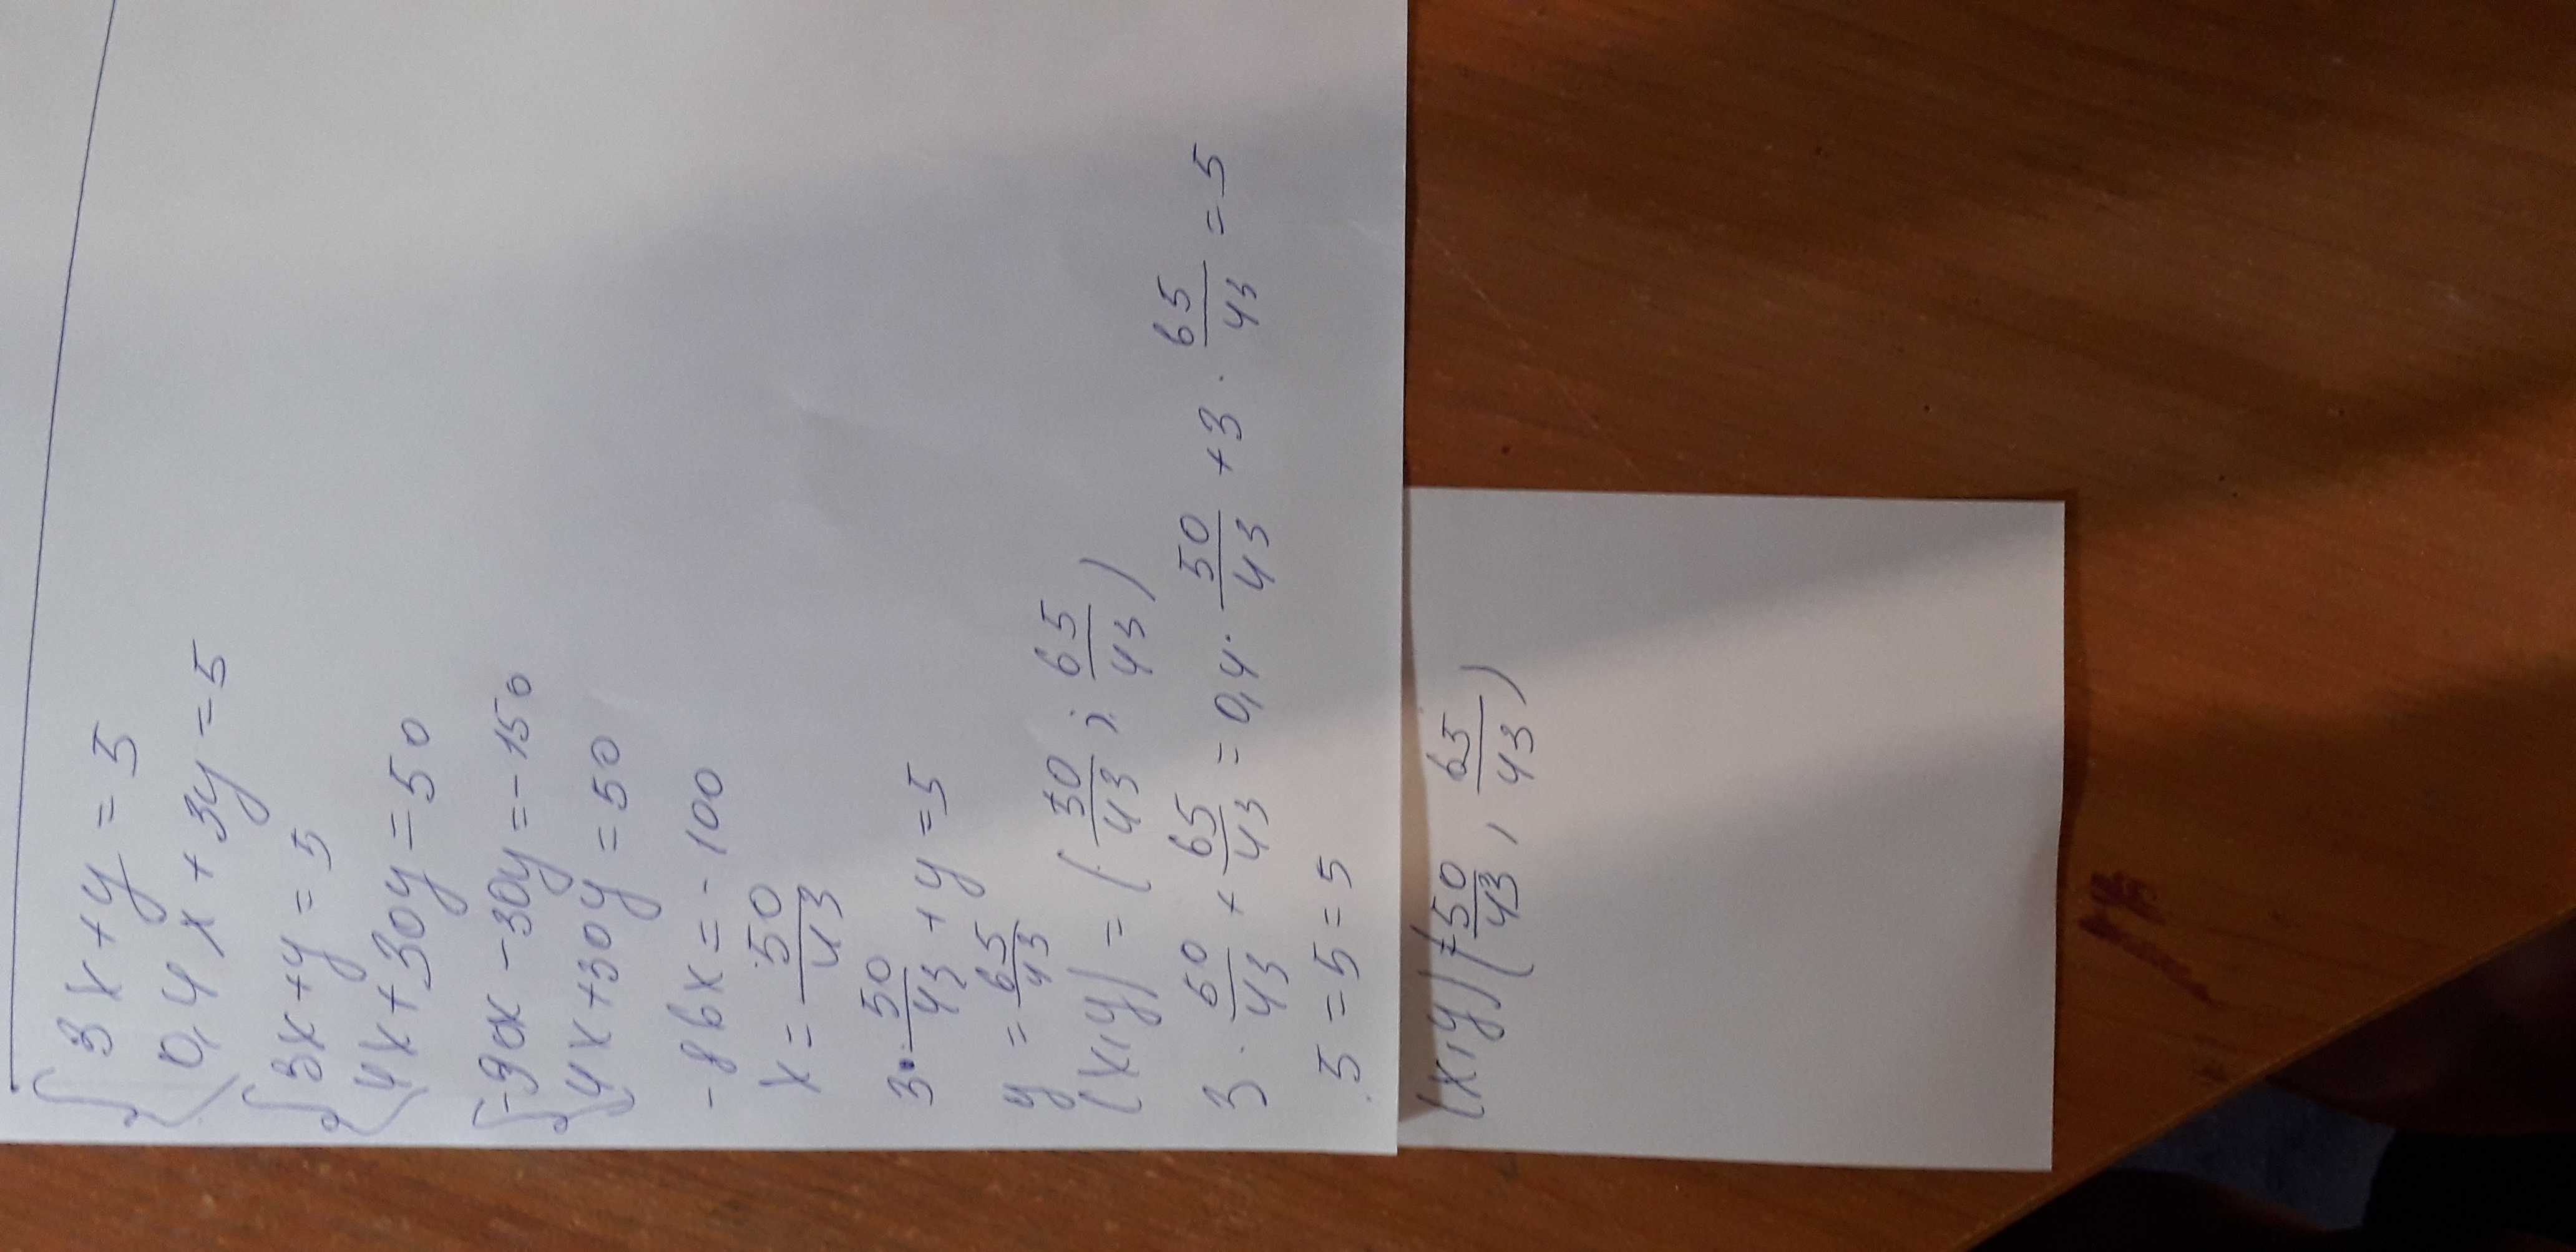 { 3x+y=5
0,4x+3y=5
{ 3x+y=5
4x+30y=50
{ -90x-30y=-150
4x+30y=50
-86x=-100
x=50/43
3·50/43+y=5
y=65/43
(x,y)=(50/43; 65/43)
3·50/43+65/43=0,4·50/43+3·65/43=5
5=5=5
(x,y)(=50/43, 65/43)